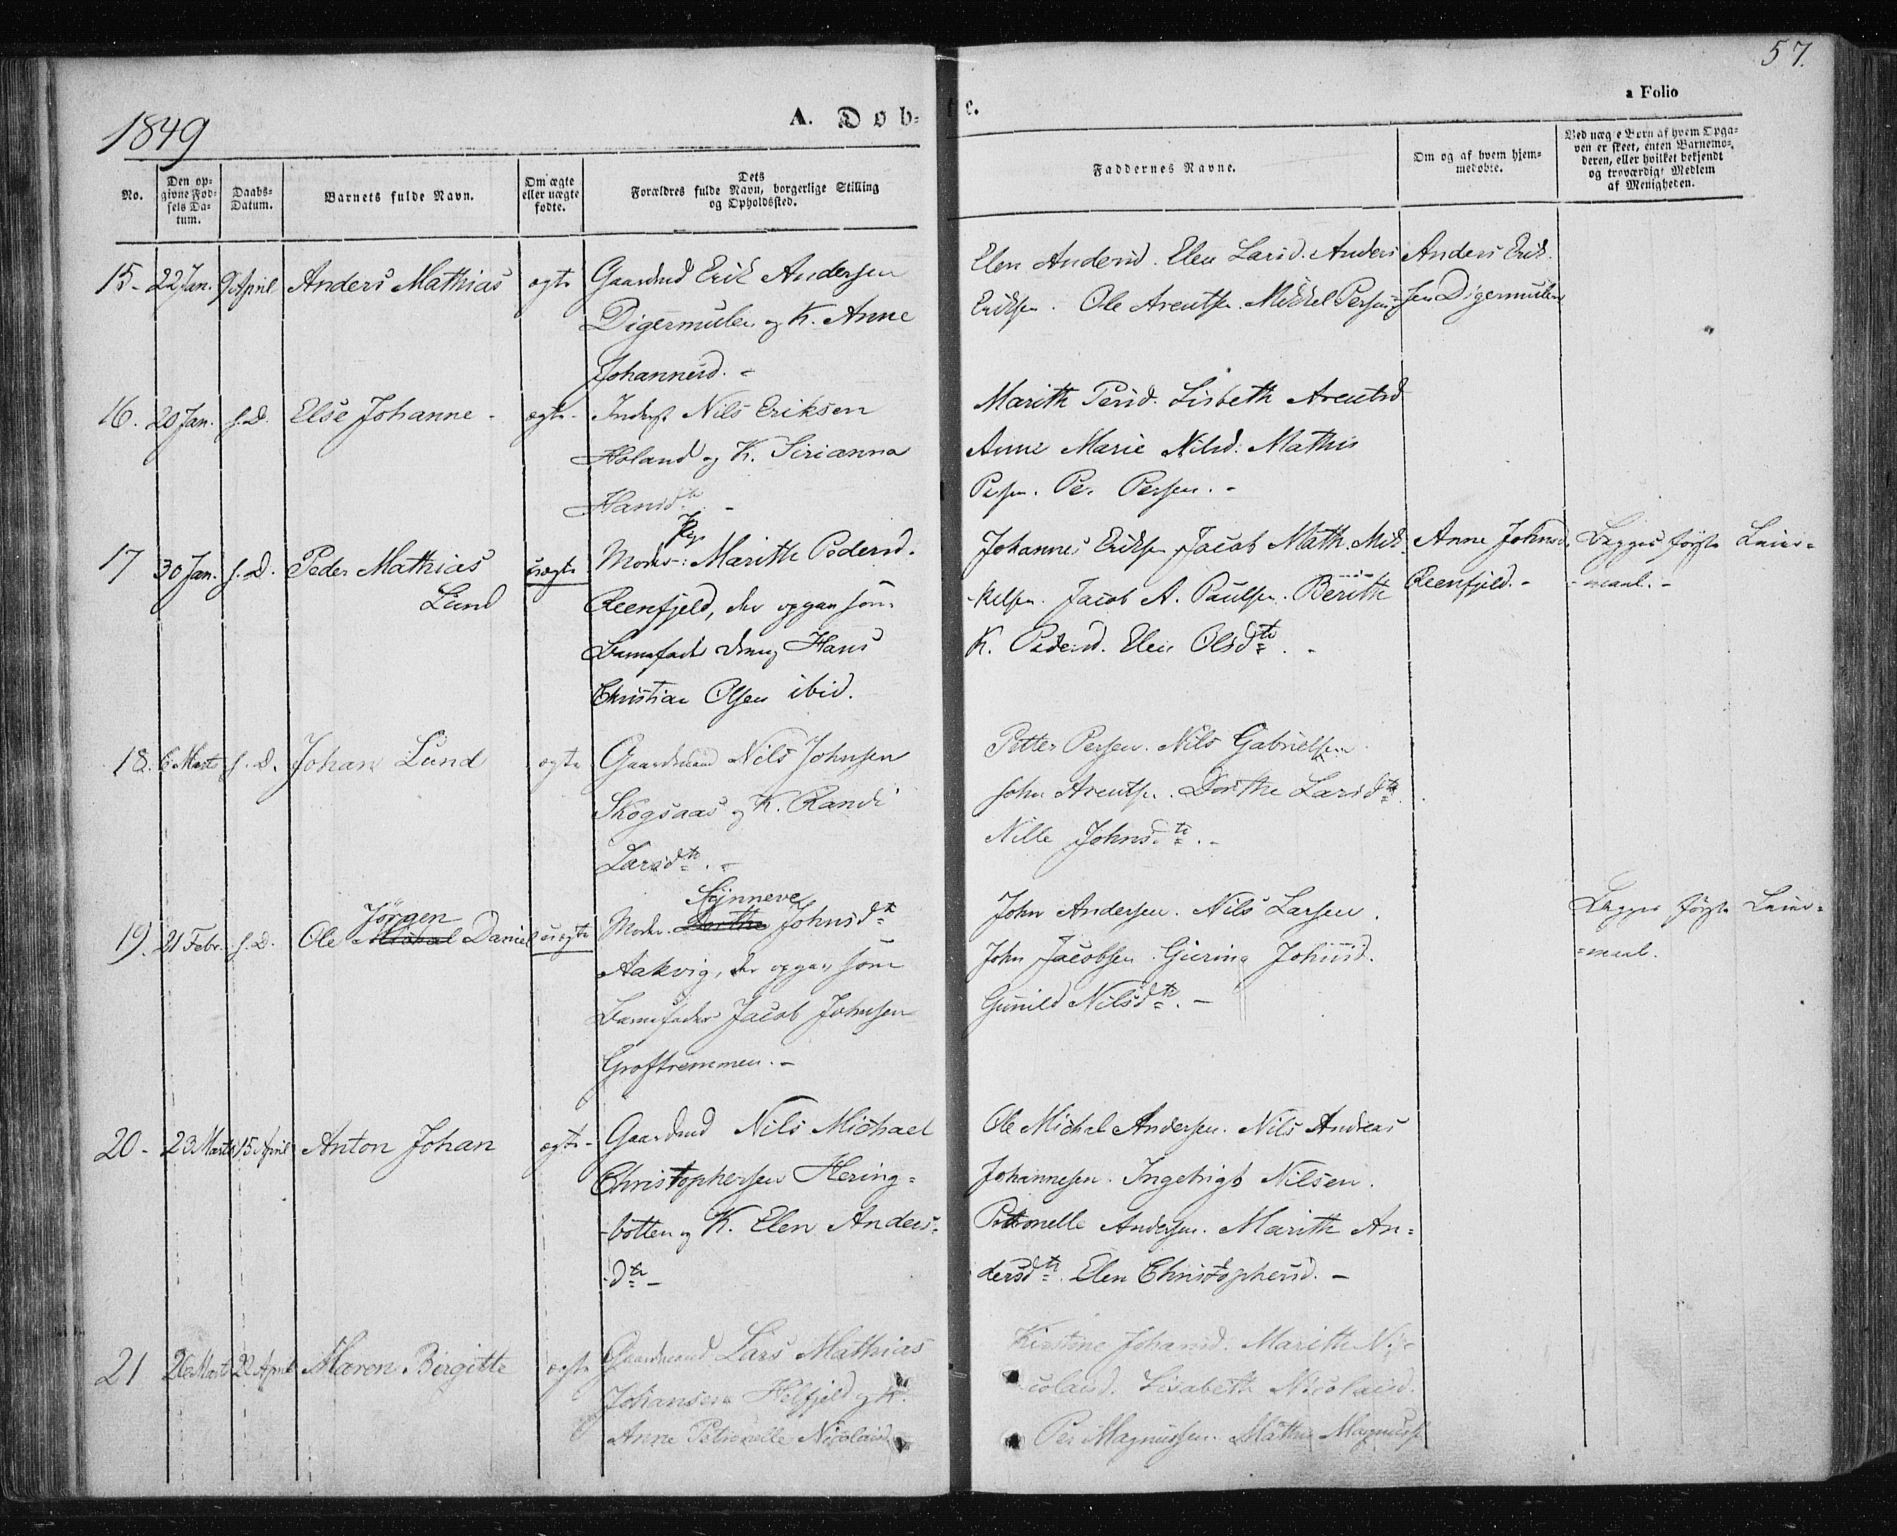 57.
a Folio
1849
A. Døb-
e.
No.
Den op-
givne Fød-
sels Da-
tum.
Daabs-
Datum.
Barnets fulde Navn.
Om ægte
eller uægte
fødte.
Dets
Forældres fulde Navn, borgerlige Stilling
og Opholdssted.
Faddernes Navne.
Om og af hvem hjem-
medøbte.
Ved uægte Børn af hvem Opga-
ven er skeet, enten Barnemo-
deren, eller hvilket bekjendt
og troværdigt Medlem
af Menigheden.
15- 22 Jan. 9 April Anders Mathias ægte Gaardmd Erik Andersen
Digermulen og K. Anne
Johannesd. -
Elen Andersd. Elen Larsd. Anders
Eriksen. Ole Arentsn. Mikkel Persen
Anders Erik-
sen Digermulen
16. 20 Jan. s.D. Else Johanne - ægte- Inderst Nils Eriksen
Holand og K. Sirianna
Hansdtr -
Marith Persd. Lisbeth Arentsd
Anne Marie Nilsd. Mathis
Persen. Per Persen. -
17 30 Jan. s.D. Peder Mathias
Lund
uægte Moder: Pige Marith Pedersd.
Reenfjeld, der opgav som
Barnefader Dreng Hans
Christian Olsen ibid.
Johannes Eriksen Jacob Math. Mik-
kelsen. Jacob A. Paulsen. Berith
K. Pedersd. Elen Olsdtr. -
Anne Johnsd.
Reenfjeld. -
Begges første Leier-
-maal. -
18. 6 Marts s.D. Johan Lund ægte Gaardmand Nils Johnsen
Skogsaas og K. Randi
Larsdtr. -
Petter Persen. Nils Gabrielsen.
John Arentsn. Dorthe Larsdtr.
Nille Johnsdtr. -
19. 21 Febr. s.D. Ole Jörgen Michal Daniel uægte Moder. Synneve Dorthe Johnsdtr
Aakvig, der opgav som
Barnefader Jacob Johnsen
Groftremmen. -
John Andersen. Nils Larsen.
John Jacobsen. Giering Johnsd.
Gunild Nilsdtr. -
Begges første Leier-
=maal.
20- 23 Marts 15 April Anton Johan ægte- Gaardmd Nils Michael
Christophersen Hering-
-botten og K. Elen Anders-
dtr -
Ole Michel Andersen. Nils Andreas
Johannesen. Ingebrigt Nilsen.
Petronelle Andersen. Marith An-
dersdtr. Elen Christophersd. -
21 26 Marts 22 April Maren Birgitte ægte Gaardmand Lars Mathias
Johansen Helfjeld og K.
Anne Petronelle Nicolaisd
Kirstine Johansd. Marith Ni-
colaisd. Lisabeth Nicolaisd.
Per Magnussen. Mathis Magnussn